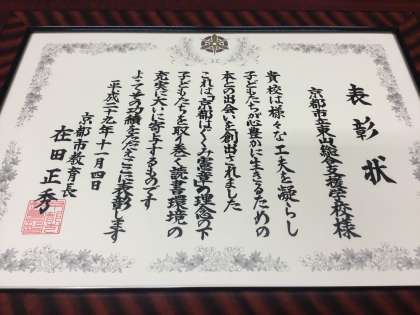 表彰状
京都市立東山総合支援学校様
貴校は様々な工夫を凝らし
子どもたちが心豊かに生きるための
本との出会いを創出されました
これは「京都はぐくみ憲章」の理念の下
子どもたちを取り巻く読書環境の
充実に大いに寄与するものです
よってその功績をたたえここに表彰します
平成二十九年十一月四日
京都市教育長
在田正秀